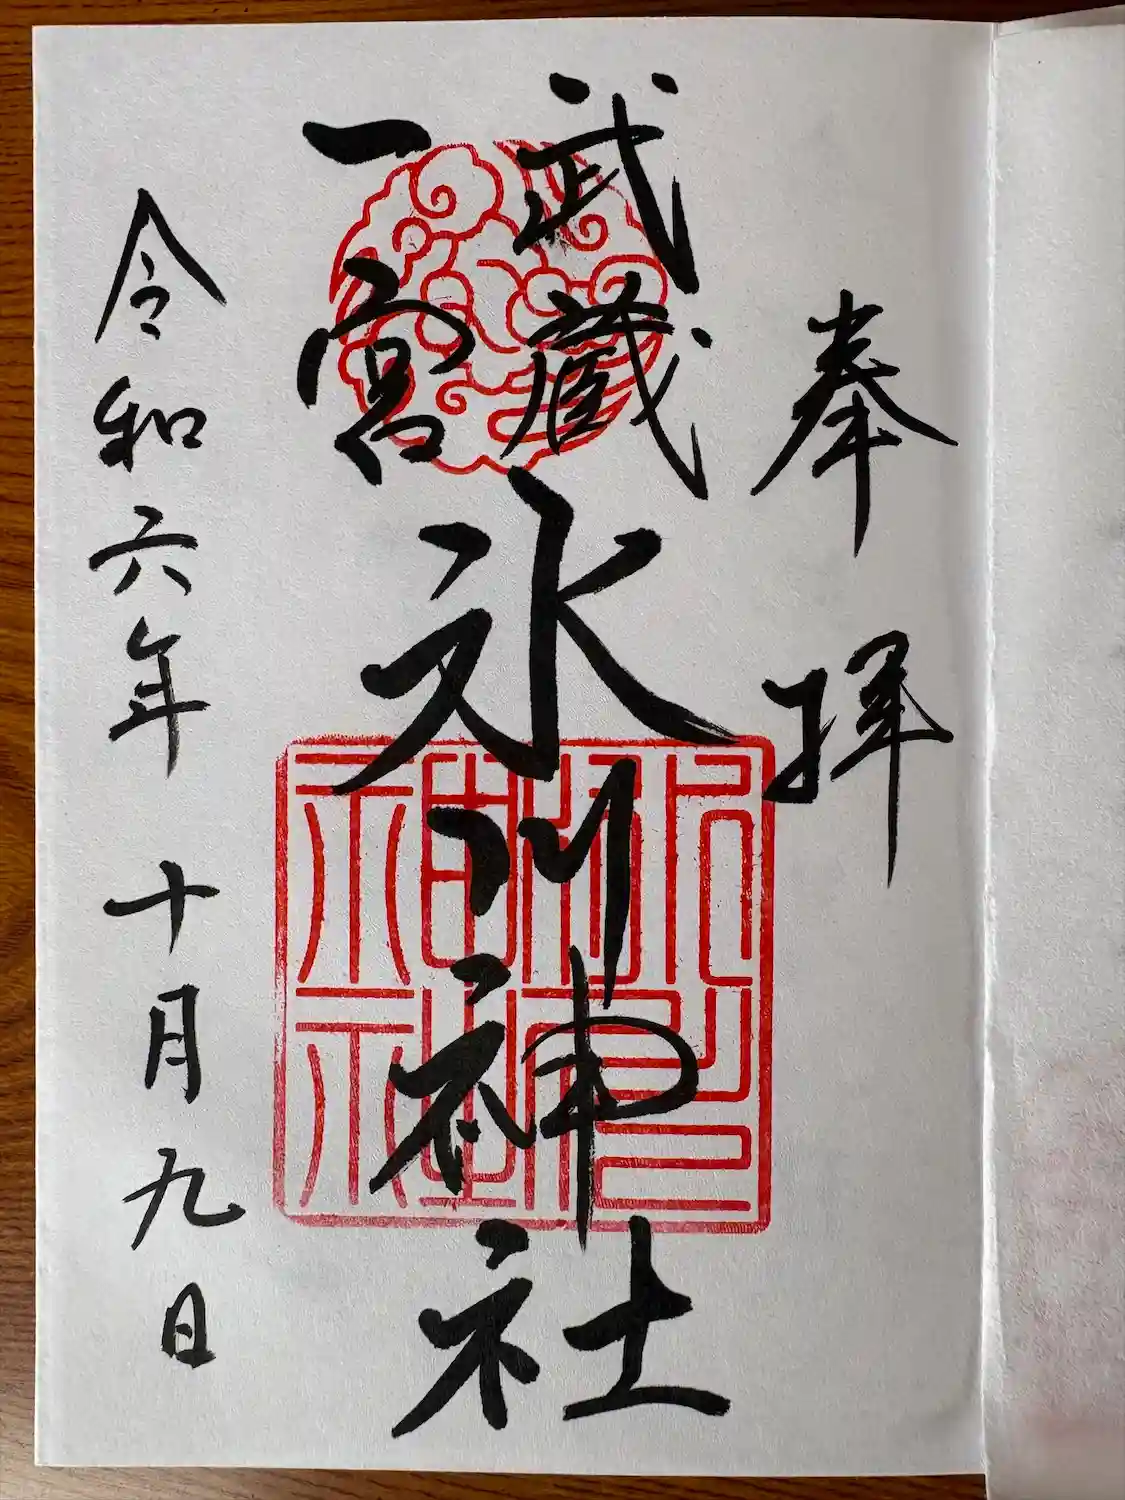 奉拝
武蔵
一宮
氷川神社
令和六年 十月九日